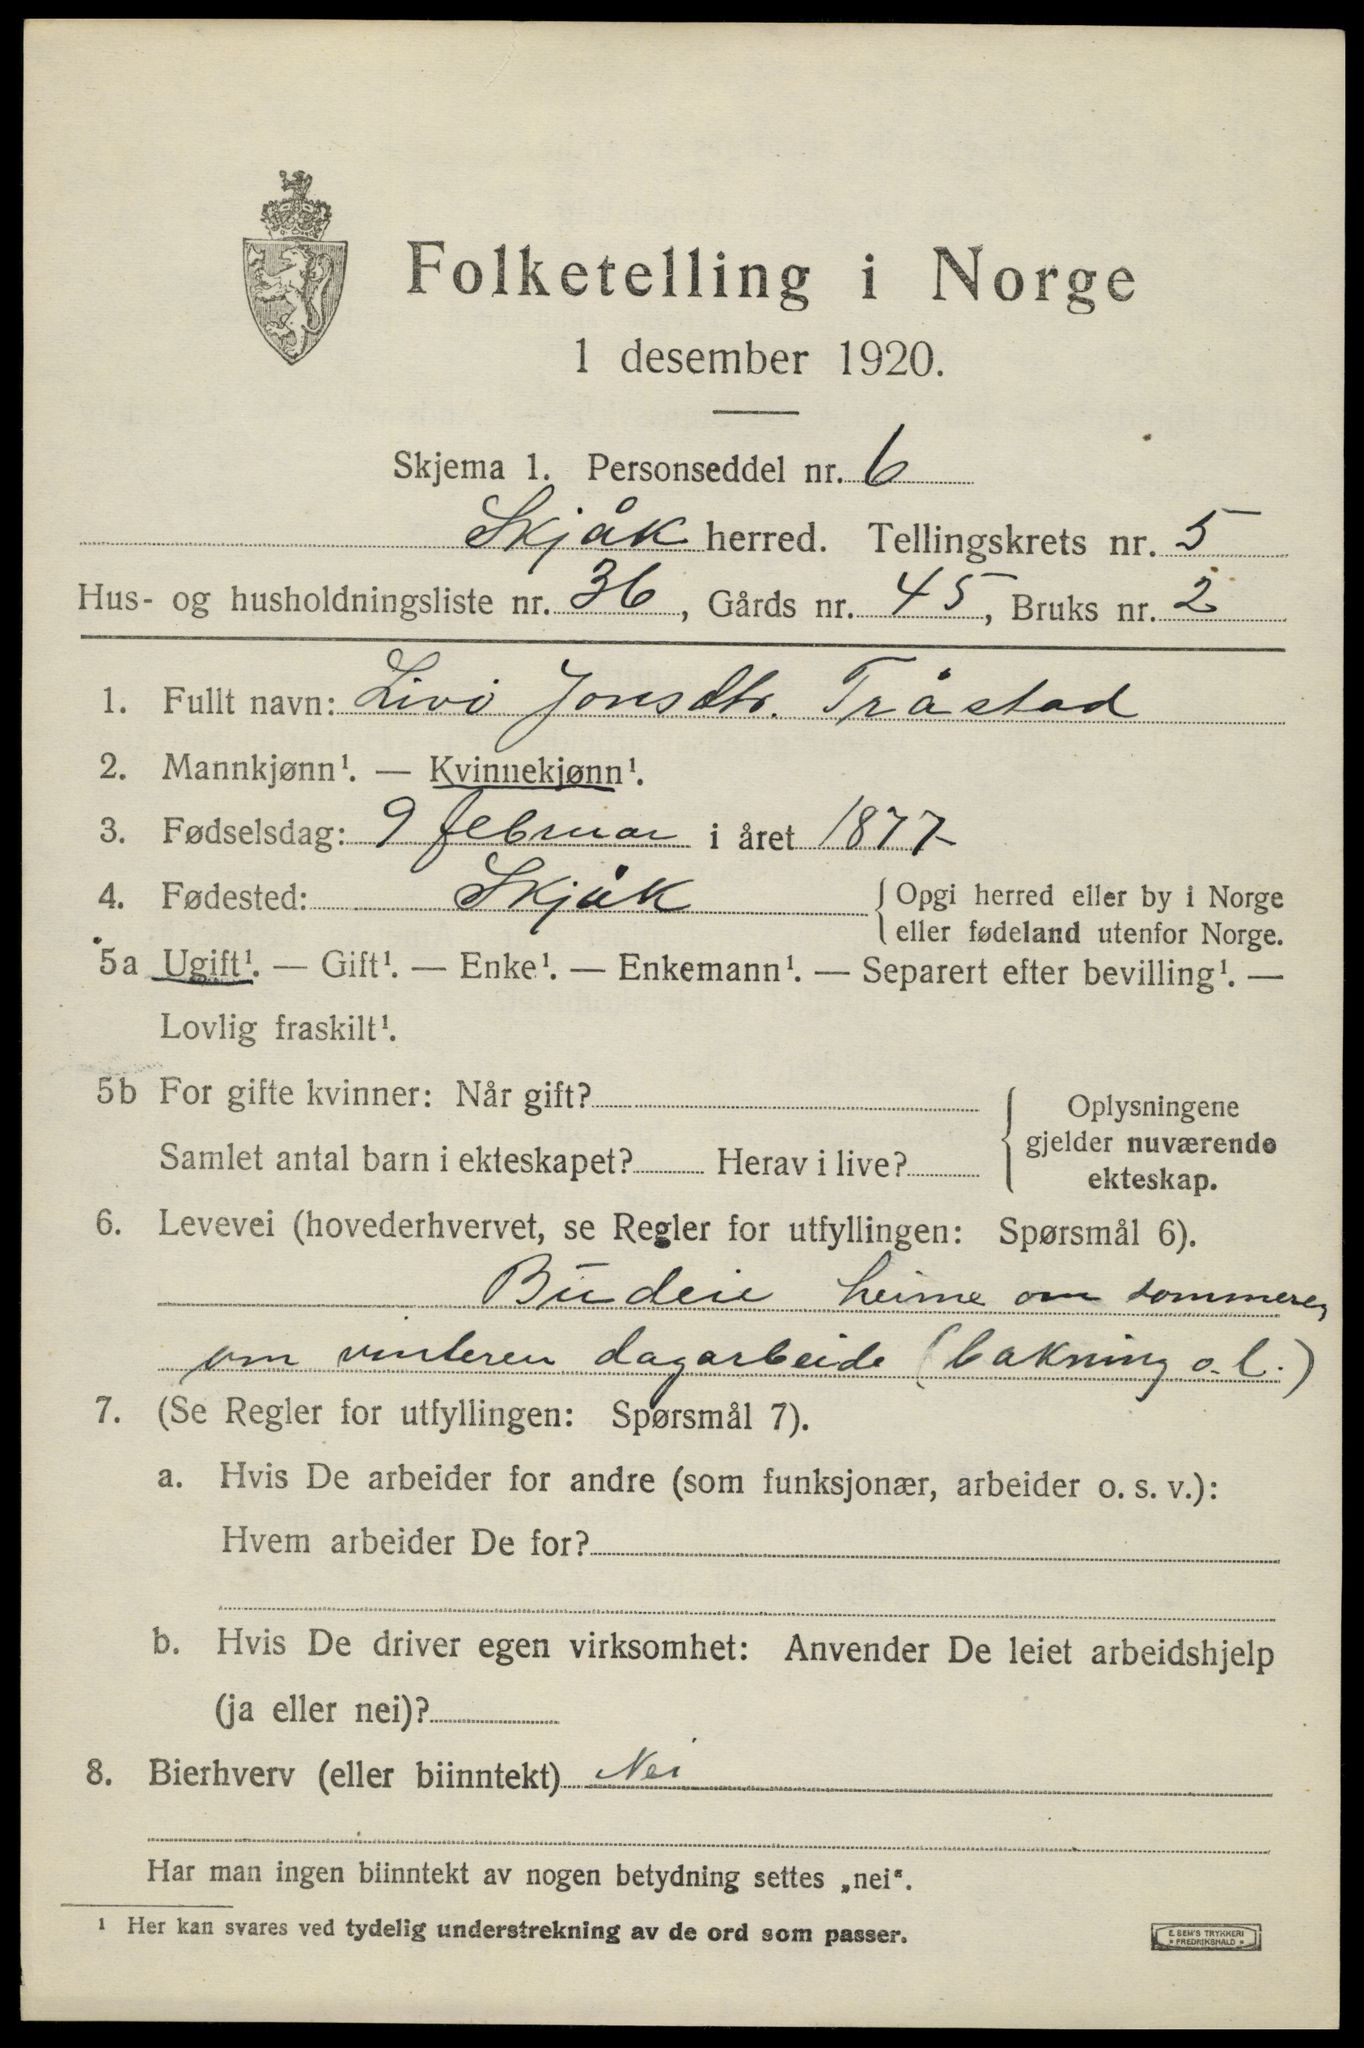 Folketelling i Norge
1 desember 1920.
Skjema 1. Personseddel nr. 6
Skjåk herred. Tellingskrets nr. 5
Hus- og husholdningsliste nr. 36, Gårds nr. 45, Bruks nr. 2
1. Fullt navn: Livi Jonsdtr. Tråstad
2. Mannkjønn¹. — Kvinnekjønn¹.
3. Fødselsdag: 9 februar i året 1877
4. Fødested: Skjåk { Opgi herred eller by i Norge
eller fødeland utenfor Norge.
5a Ugift¹. — Gift¹. — Enke¹. — Enkemann¹. — Separert efter bevilling¹. —
Lovlig fraskilt¹.
5b For gifte kvinner: Når gift?
Samlet antal barn i ekteskapet? Herav i live?
Oplysningene
gjelder nuværende
ekteskap.
6. Levevei (hovederhvervet, se Regler for utfyllingen: Spørsmål 6).
Budeie heime om sommeren,
om vinteren dagarbeide (bakning o.l.)
7. (Se Regler for utfyllingen: Spørsmål 7).
a. Hvis De arbeider for andre (som funksjonær, arbeider o. s. v.):
Hvem arbeider De for?
b. Hvis De driver egen virksomhet: Anvender De leiet arbeidshjelp
(ja eller nei)?
8. Bierhverv (eller biinntekt) Nei
Har man ingen biinntekt av nogen betydning settes „nei“.
¹ Her kan svares ved tydelig understrekning av de ord som passer.
E. SEM'S TRYKKERI
* FREDRIKSHALD *